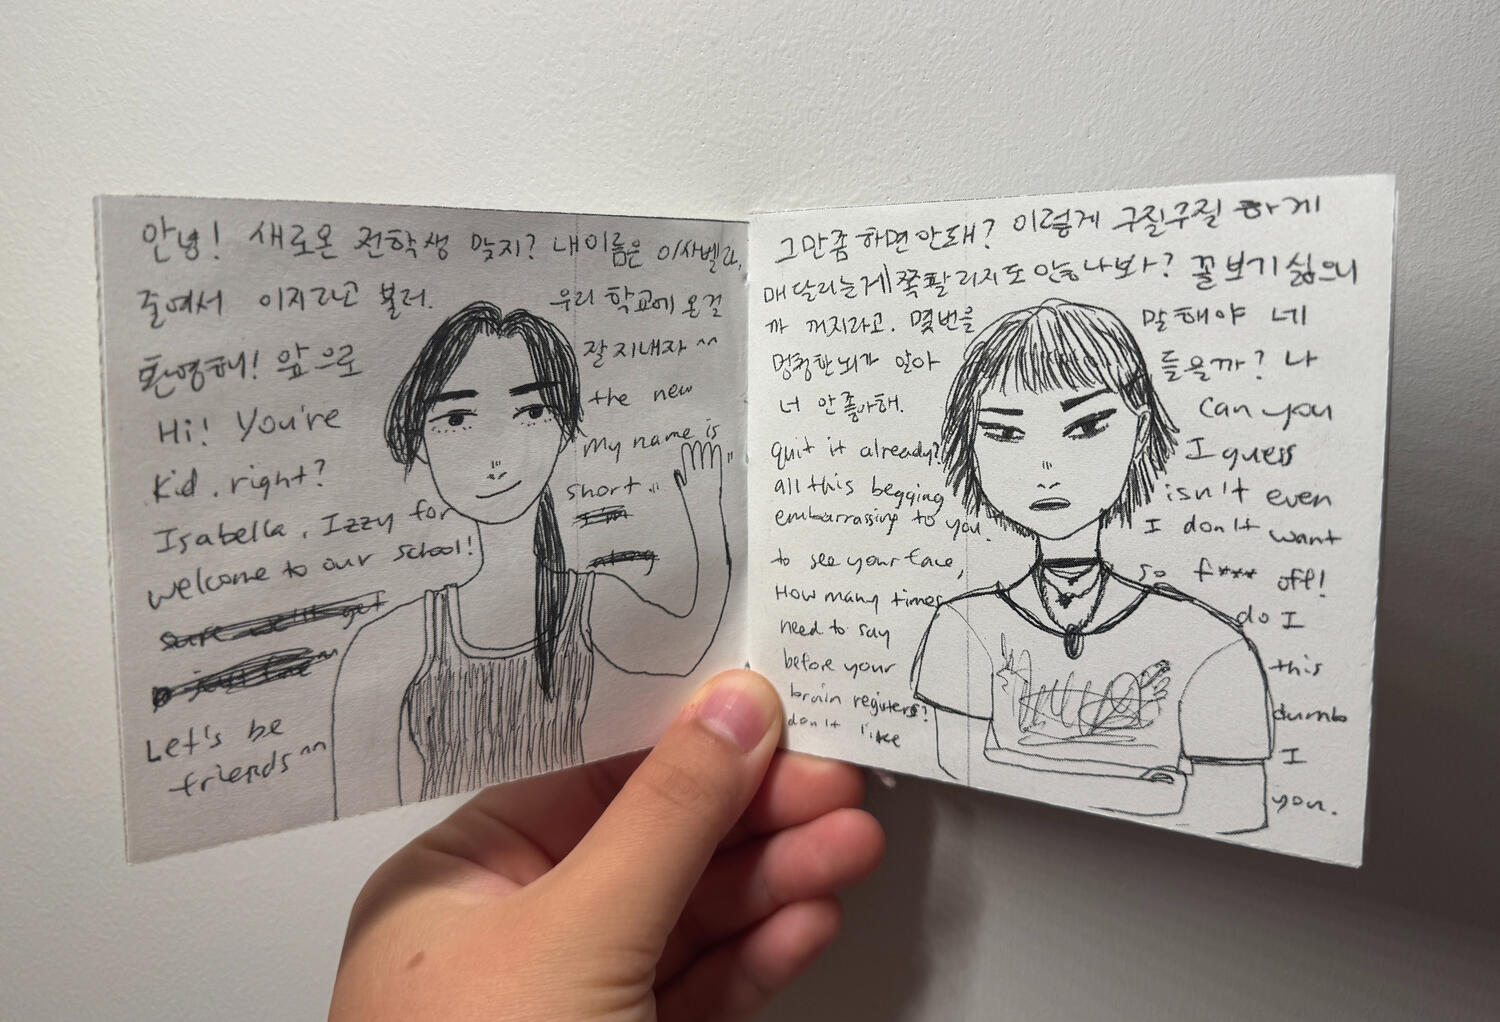 안녕! 새로온 전학생 맞지? 내이름은 이사벨라,
줄여서 이지라고 불러. 우리 학교에 온걸
환영해! 앞으로 잘지내자 ^^
Hi! You're the new
Kid, right? My name is
Isabella, Izzy for short.
welcome to our school!
Let's be
friends ^^
그만좀 하면 안돼? 이렇게 구질구질 하게
매달리는게 쪽팔리지도 않나봐? 꼴보기 싫으니
까 꺼지라고. 몇번을 말해야 네
멍청한뇌가 알아 들을까? 나
너 안좋아해.
Can you
quit it already? I guess
all this begging isn't even
embarrassing to you. I don't want
to see your face, so f*** off!
How many times do I
need to say this
before your dumb
brain registers? I
don't like you.